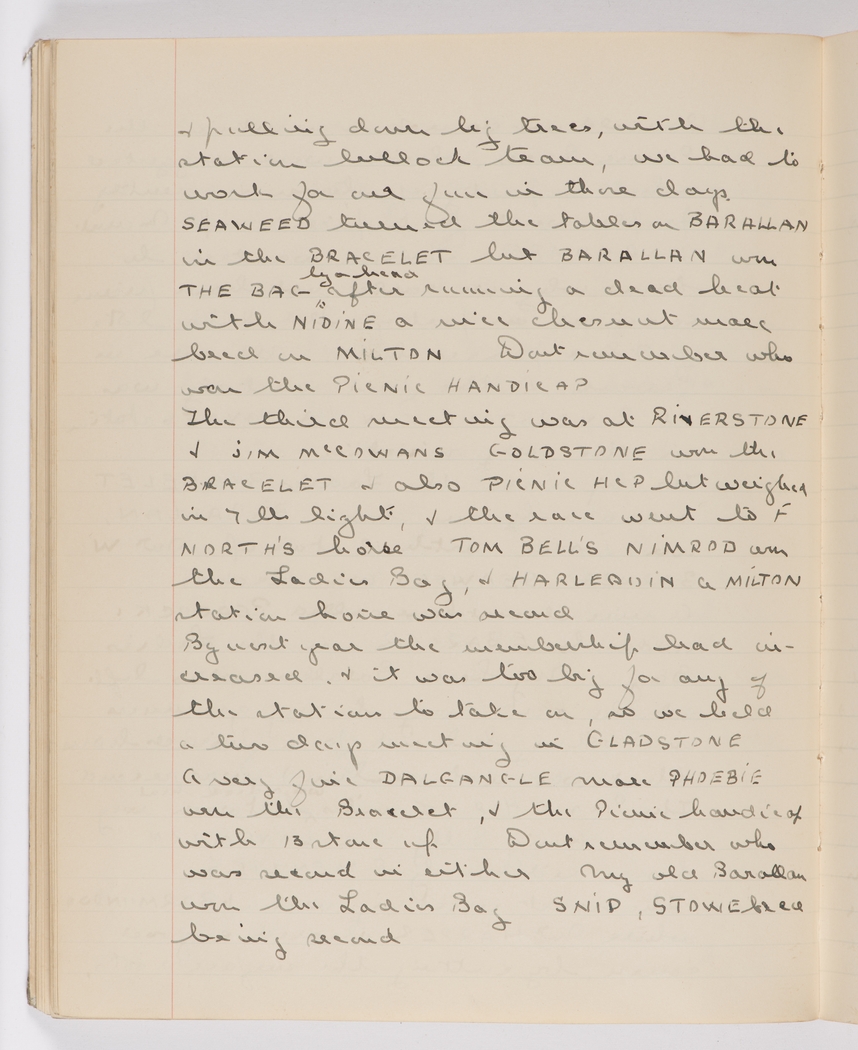 & pulling down big trees, with the
station bullock team, we had to
work for our fun in those days.
SEAWEED turned the tables on BARALLAN
in the BRACELET but BARALLAN won
by a head
THE BAG after running a dead heat
with NIDINE a nice chesnut mare
bred on MILTON Dont remember who
won the PICNIC HANDICAP
The third meeting was at RIVERSTONE
& JIM McCOWANS GOLDSTONE won the
BRACELET & also PICNIC HCP but weighed
in 7 lbs light, & the race went to F
NORTH'S horse TOM BELL'S NIMROD won
the Ladies Bag, & HARLEQUIN a MILTON
station horse was second
By next year the membership had in-
creased, & it was too big for any of
the stations to take on, so we held
a two days meeting in GLADSTONE
A very fine DALGANGLE mare PHOEBIE
won the Bracelet, & the Picnic handicap
with 13 stone up Dont remember who
was second in either My old Barallan
won the Ladies Bag SNIP, STOWE bred
being second